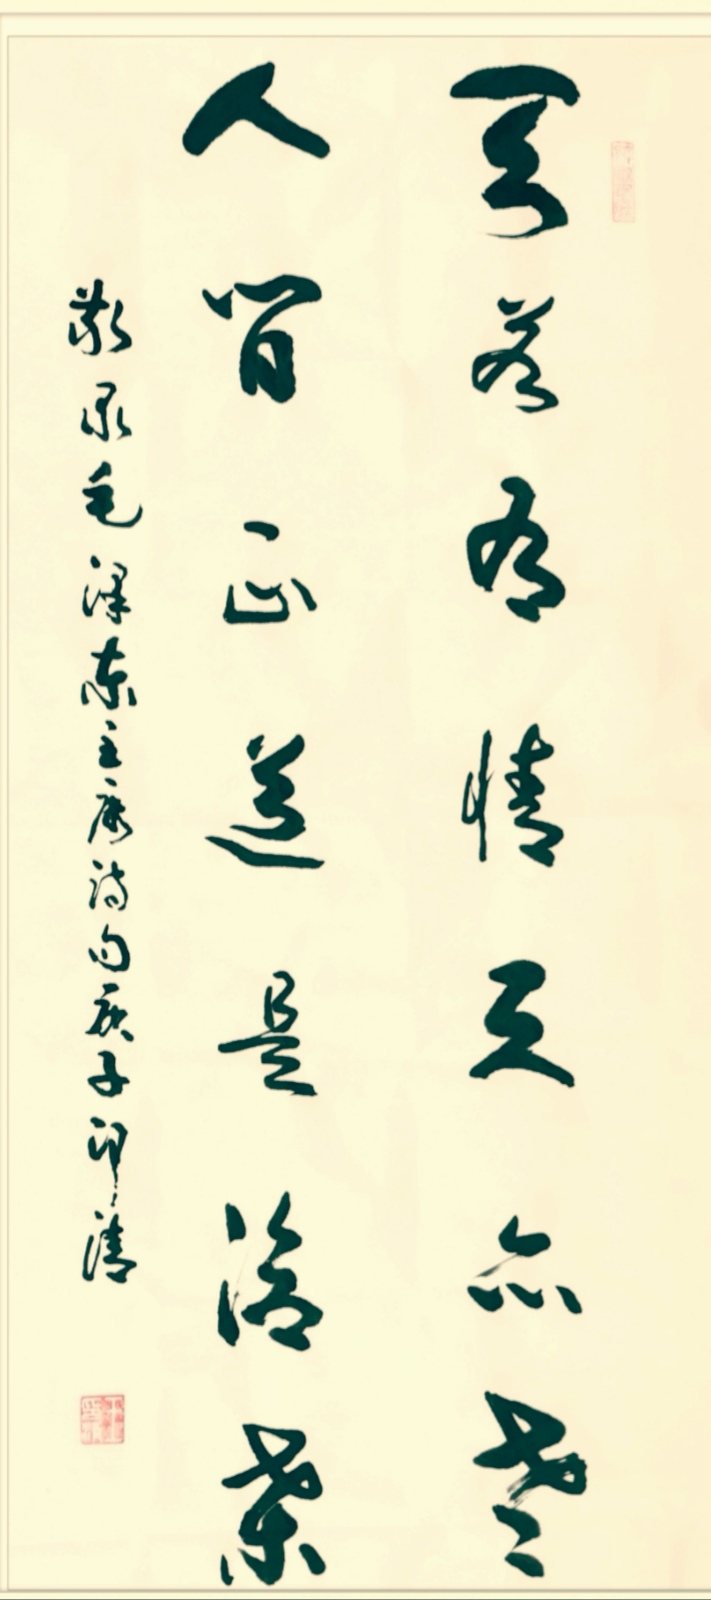 天若有情天亦老
人间正道是沧桑
敬录毛泽东主席诗句庚子印清